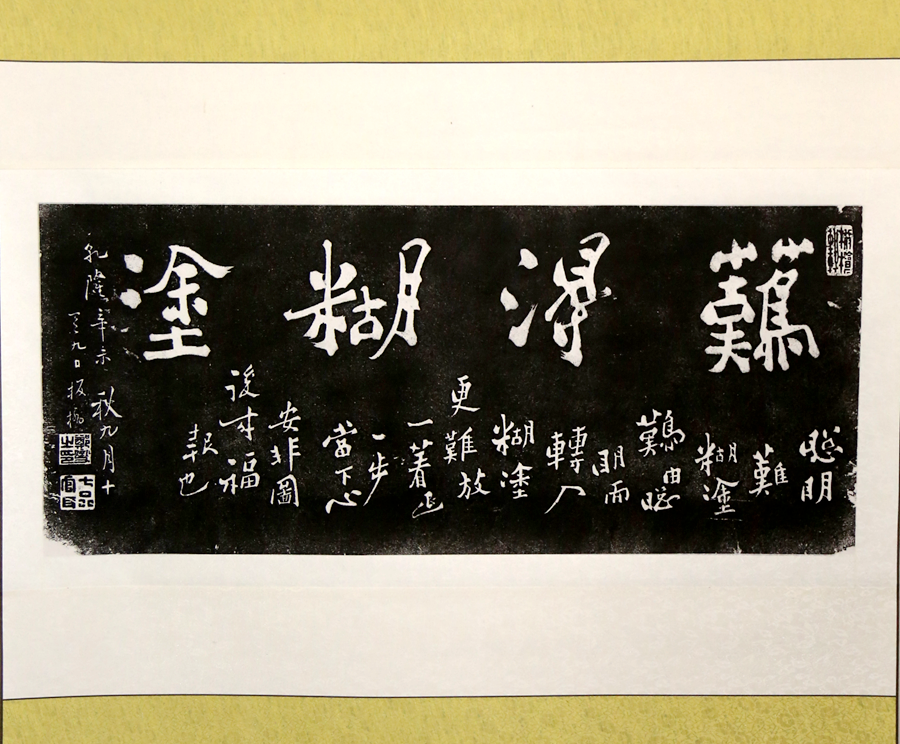 難得糊塗
聰明
難
糊塗
難由聰
明而
轉入
糊塗
更難放
一著退
一步
當下心
安非圖
後來福
報也
乾隆辛未秋九月十
九日板橋
鄭燮之印
七品官耳